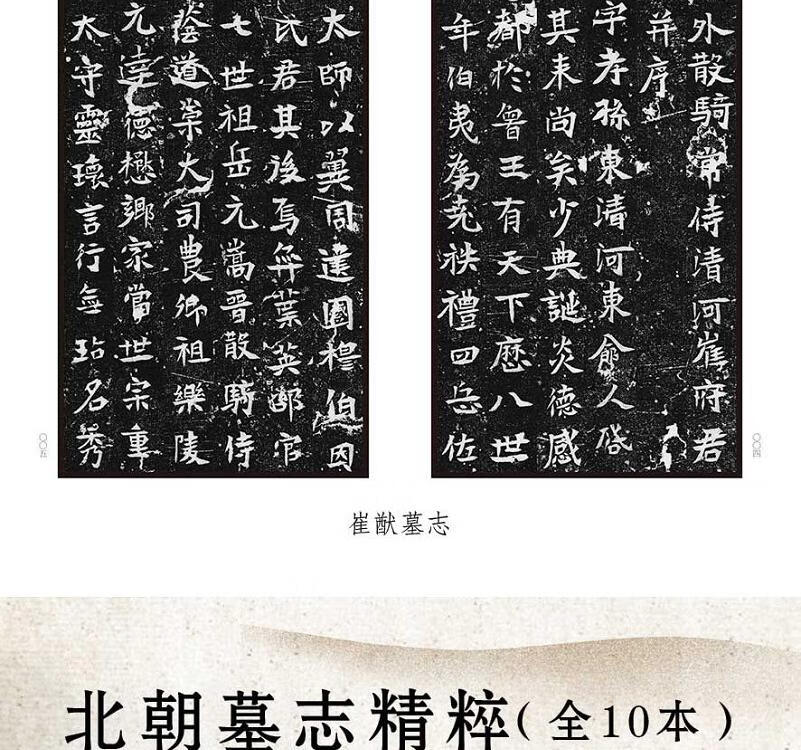 外散騎常侍清河崔府君
并序
字孝孫東清河東俞人啓
其耒尚矣少典誕炎德感
都於魯王有天下歷八世
年伯夷為堯秩禮四岳佐
〇〇四
太師以翼周達國穆伯因
氏君其後焉弈葉英邵官
七世祖岳元嵩晉散騎侍
蔭道崇大司農卿祖樂陵
元達德懋鄉家當世宗重
太守靈瓌言行無玷名秀
〇〇五
崔猷墓志
北朝墓志精粹(全10本)